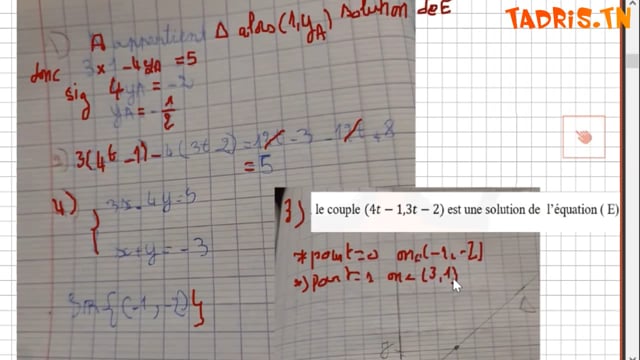 TADRIS.TN
1) A appartient Δ alors (1, yA) solution de E
donc 3x1 - 4yA = 5
sig 4yA = -2
yA = -1/2
2) 3(4t-1) - 4(3t-2) = 12t - 3 - 12t + 8
= 5
4) { 3x - 4y = 5
x + y = -3
{(-1, -2)}
3) . le couple (4t − 1,3t − 2) est une solution de l'équation ( E)
* pour t=0 on a (-1, -2)
*) pour t=1 on a (3, 1)